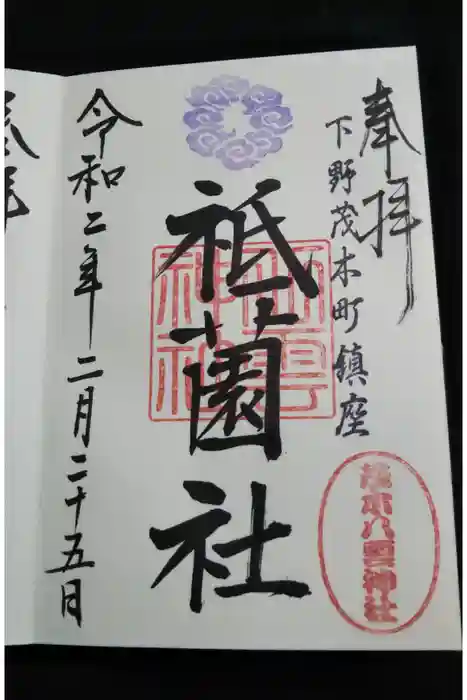 奉拝
下野茂木町鎮座
茂木八雲神社
祇園社
八雲神社
令和二年 二月二十五日